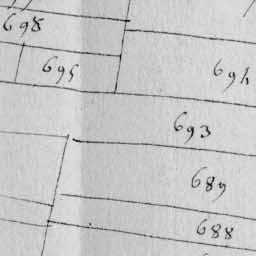 698
695
694
693
689
688